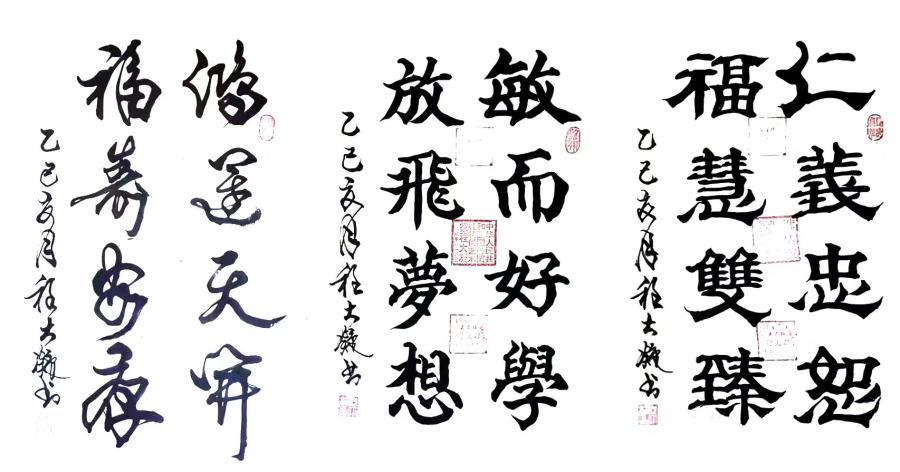 仁義忠恕
福慧雙臻
乙巳亥月程大凝书
敏而好學
放飛夢想
乙巳亥月程大凝书
鴻運天開
福壽安康
乙巳亥月程大凝书